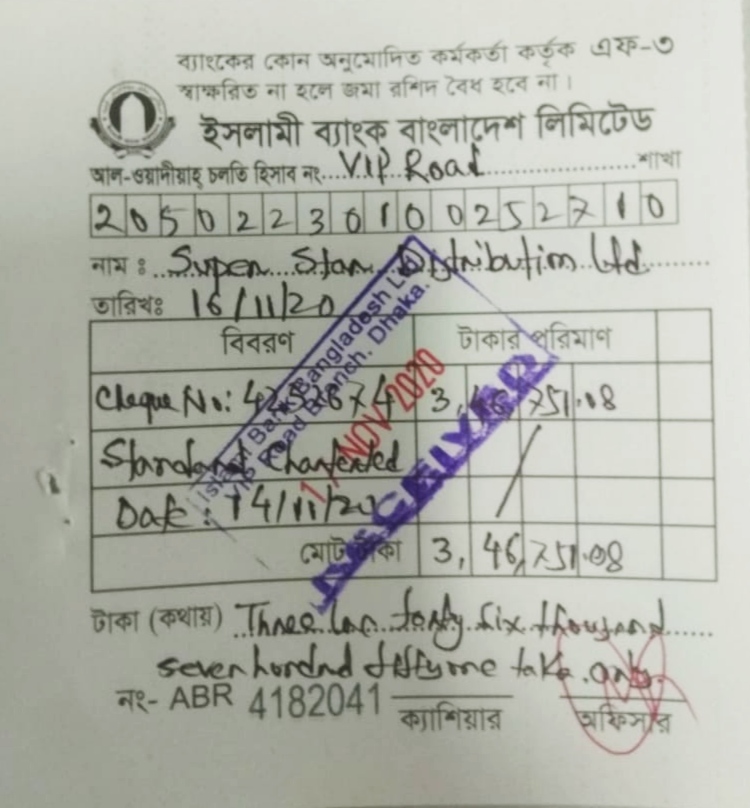 ব্যাংকের কোন অনুমোদিত কর্মকর্তা কর্তৃক এফ-৩
স্বাক্ষরিত না হলে জমা রশিদ বৈধ হবে না।
ইসলামী ব্যাংক বাংলাদেশ লিমিটেড
আল-ওয়াদীয়াহ্ চলতি হিসাব নং... VIP Road ...শাখা
2 0 5 0 2 2 3 0 1 0 0 2 5 2 7 1 0
নাম : Super Star Distribution Ltd.
তারিখঃ 16/11/20
বিবরণ টাকার পরিমাণ
Cheque No: 3,46,751.08
Standard Chartered
Date: 14/11/20
মোট টাকা 3,46,751.08
Islami Bank Bangladesh Ltd.
VIP Road Branch. Dhaka.
NOV 2020
টাকা (কথায়) Three lac forty six thousand
seven hundred fifty one taka only.
নং- ABR 4182041 ক্যাশিয়ার অফিসার